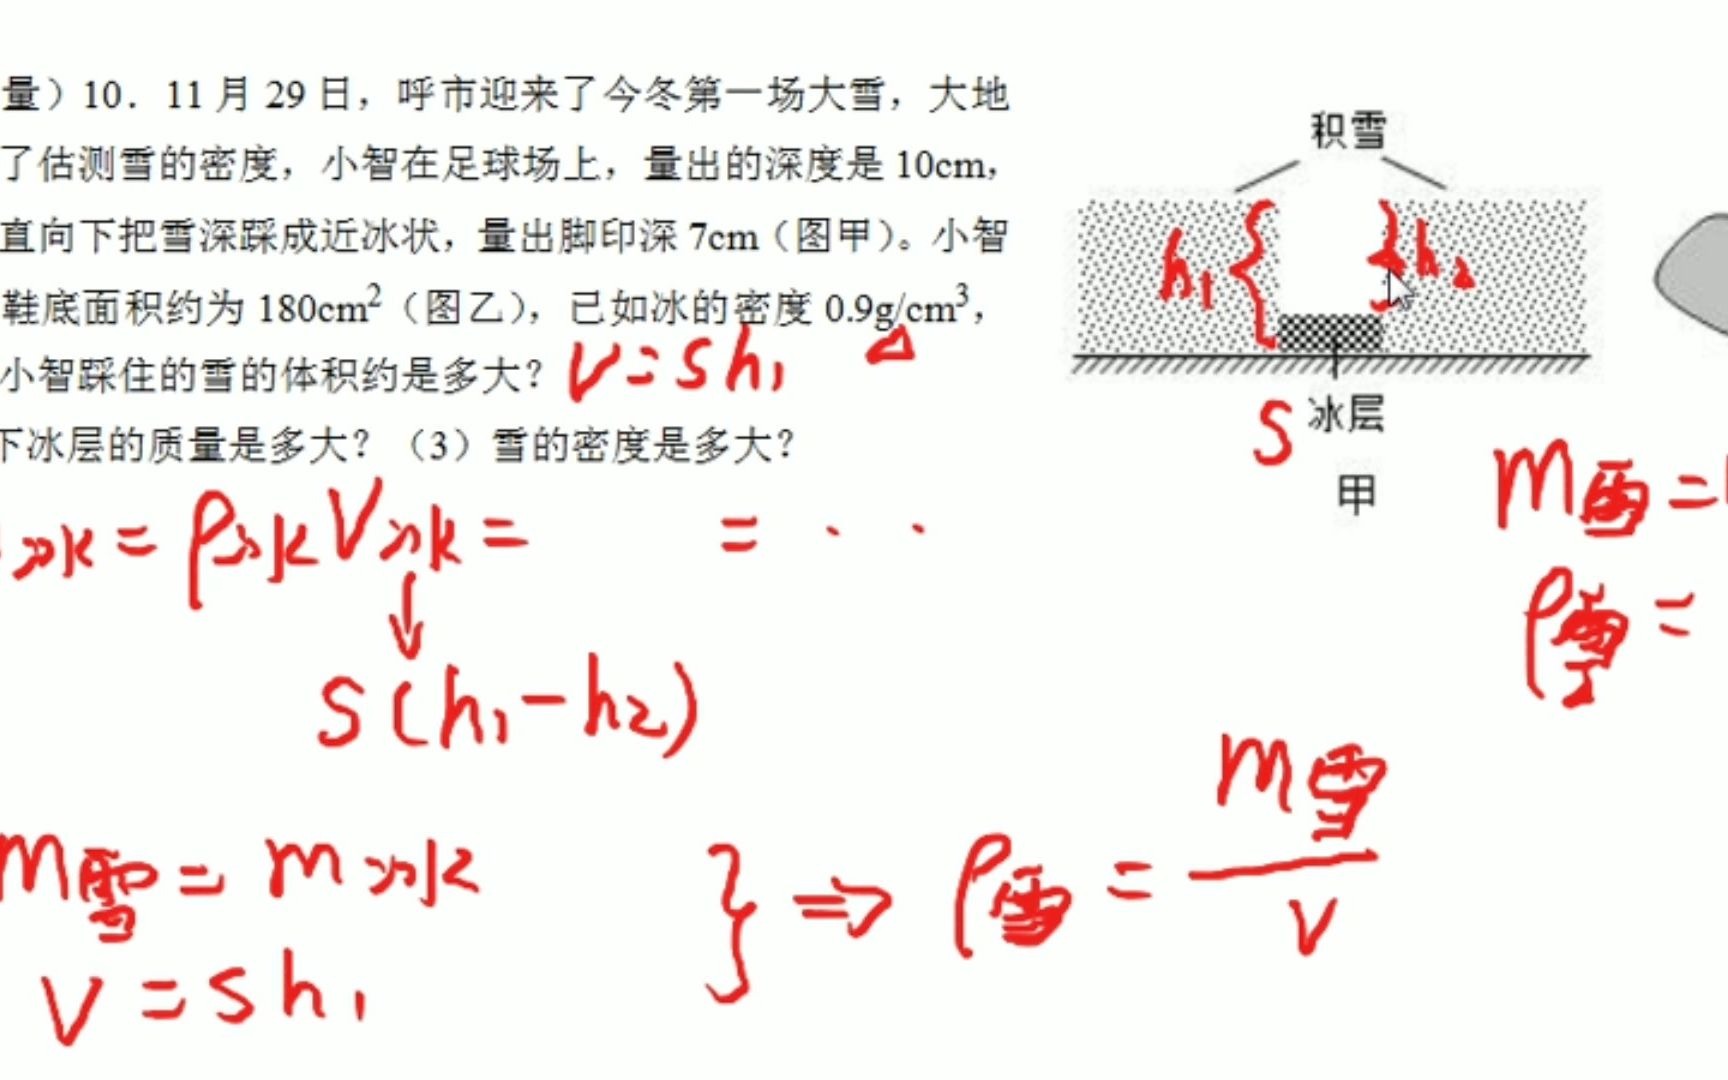 量）10．11月29日，呼市迎来了今冬第一场大雪，大地
了估测雪的密度，小智在足球场上，量出的深度是10cm，
直向下把雪深踩成近冰状，量出脚印深7cm（图甲）。小智
鞋底面积约为180cm²（图乙），已如冰的密度0.9g/cm³，
小智踩住的雪的体积约是多大？ V=Sh₁
下冰层的质量是多大？（3）雪的密度是多大？
积雪
h₁
h₂
S
冰层
甲
冰=ρ冰V冰= =··
↓
S(h₁-h₂)
m雪=
ρ雪=
m雪=m冰
V=Sh₁
}⇒ρ雪=
m雪
V